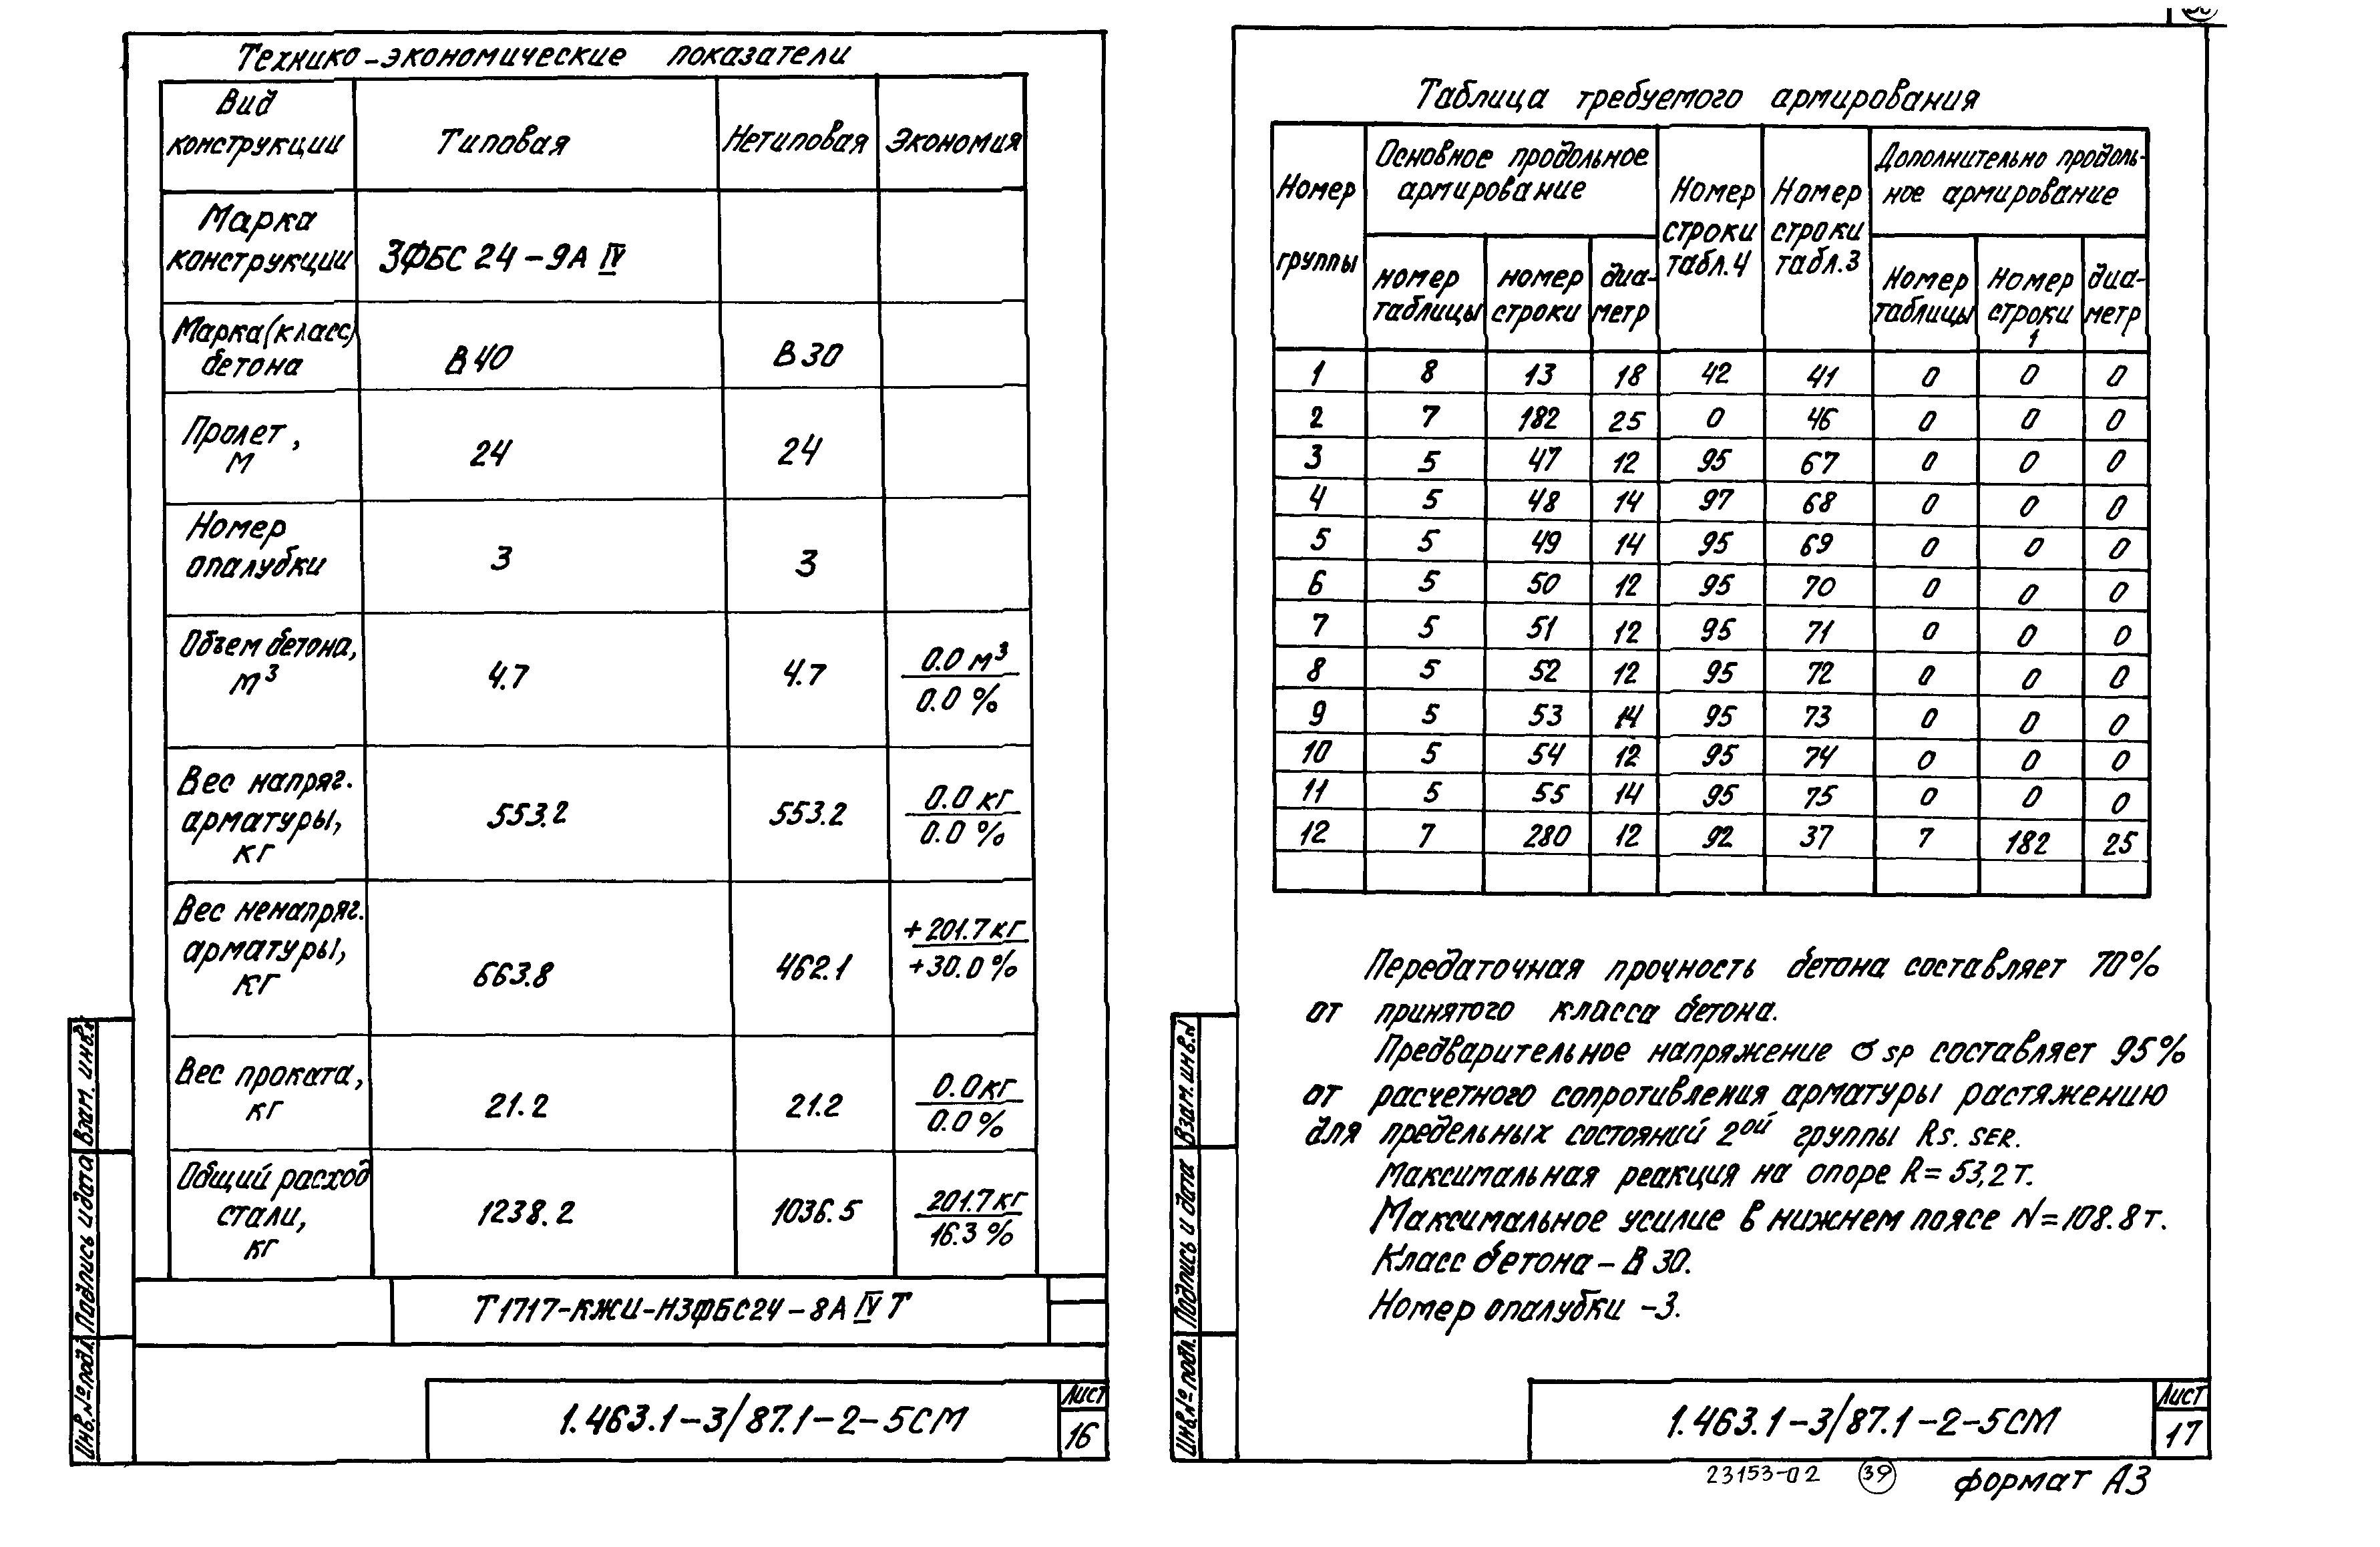 Технико-экономические показатели
Вид конструкции Типовая Нетиповая Экономия
Марка конструкции 3ФБС 24-9А IV
Марка (класс) бетона В 40 В 30
Пролет, м 24 24
Номер опалубки 3 3
Объем бетона, м³ 4.7 4.7 0.0 м³ 0.0 %
Вес напряг. арматуры, кг 553.2 553.2 0.0 кг 0.0 %
Вес ненапряг. арматуры, кг 663.8 462.1 +201.7 кг +30.0 %
Вес проката, кг 21.2 21.2 0.0 кг 0.0 %
Общий расход стали, кг 1238.2 1036.5 201.7 кг 16.3 %
Т1717-КЖИ-Н3ФБС24-8А IV Т
1.463.1-3/87.1-2-5СМ
Лист
16
Инв.№ подл. Подпись и дата Взам. инв.№
Таблица требуемого армирования
Номер группы
Основное продольное армирование
номер таблицы номер строки диаметр
Номер строки табл.4
Номер строки табл.3
Дополнительно продольное армирование
Номер таблицы Номер строки диаметр
1
1 8 13 18 42 41 0 0 0
2 7 182 25 0 46 0 0 0
3 5 47 12 95 67 0 0 0
4 5 48 14 97 68 0 0 0
5 5 49 14 95 69 0 0 0
6 5 50 12 95 70 0 0 0
7 5 51 12 95 71 0 0 0
8 5 52 12 95 72 0 0 0
9 5 53 14 95 73 0 0 0
10 5 54 12 95 74 0 0 0
11 5 55 14 95 75 0 0 0
12 7 280 12 92 37 7 182 25
Передаточная прочность бетона составляет 70%
от принятого класса бетона.
Предварительное напряжение σ sp составляет 95%
от расчетного сопротивления арматуры растяжению
для предельных состояний 2ой группы Rs. ser.
Максимальная реакция на опоре R=53,2 т.
Максимальное усилие в нижнем поясе N=108.8 т.
Класс бетона – В 30.
Номер опалубки -3.
1.463.1-3/87.1-2-5СМ
Лист
17
Инв.№ подл. Подпись и дата Взам.инв.№
23153-02 39 формат А3